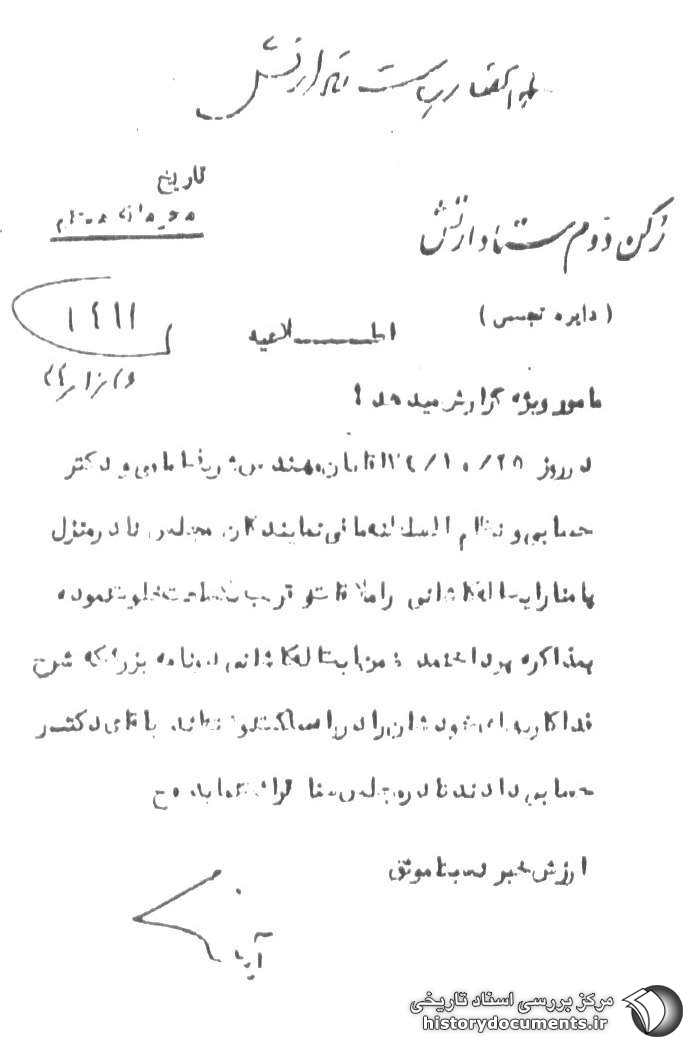 ارتش
تاریخ
محرمانه مستقیم
رکن دوم ستاد ارتش
(دایره تجسس)
اطلاعیه
مامور ویژه گزارش میدهد :
در روز ۲۸/۱۰/ آقایان مهندس شریف امامی و دکتر
حسابی و نظام السلطنه مافی نمایندگان مجلس سنا در منزل
پامنار آیت اله کاشانی را ملاقات و قریب یکساعت خلوت نموده
بمذاکره پرداختند ضمنا آیت اله کاشانی نامه بزرگی که شرح
فداکاریهای خودشان را در را باقای دکتر
حسابی دادند تا در مجلس سنا قرائت نماید ح
ارزش خبر نسبتا موثق
مرکز بررسی اسناد تاریخی
historydocuments.ir